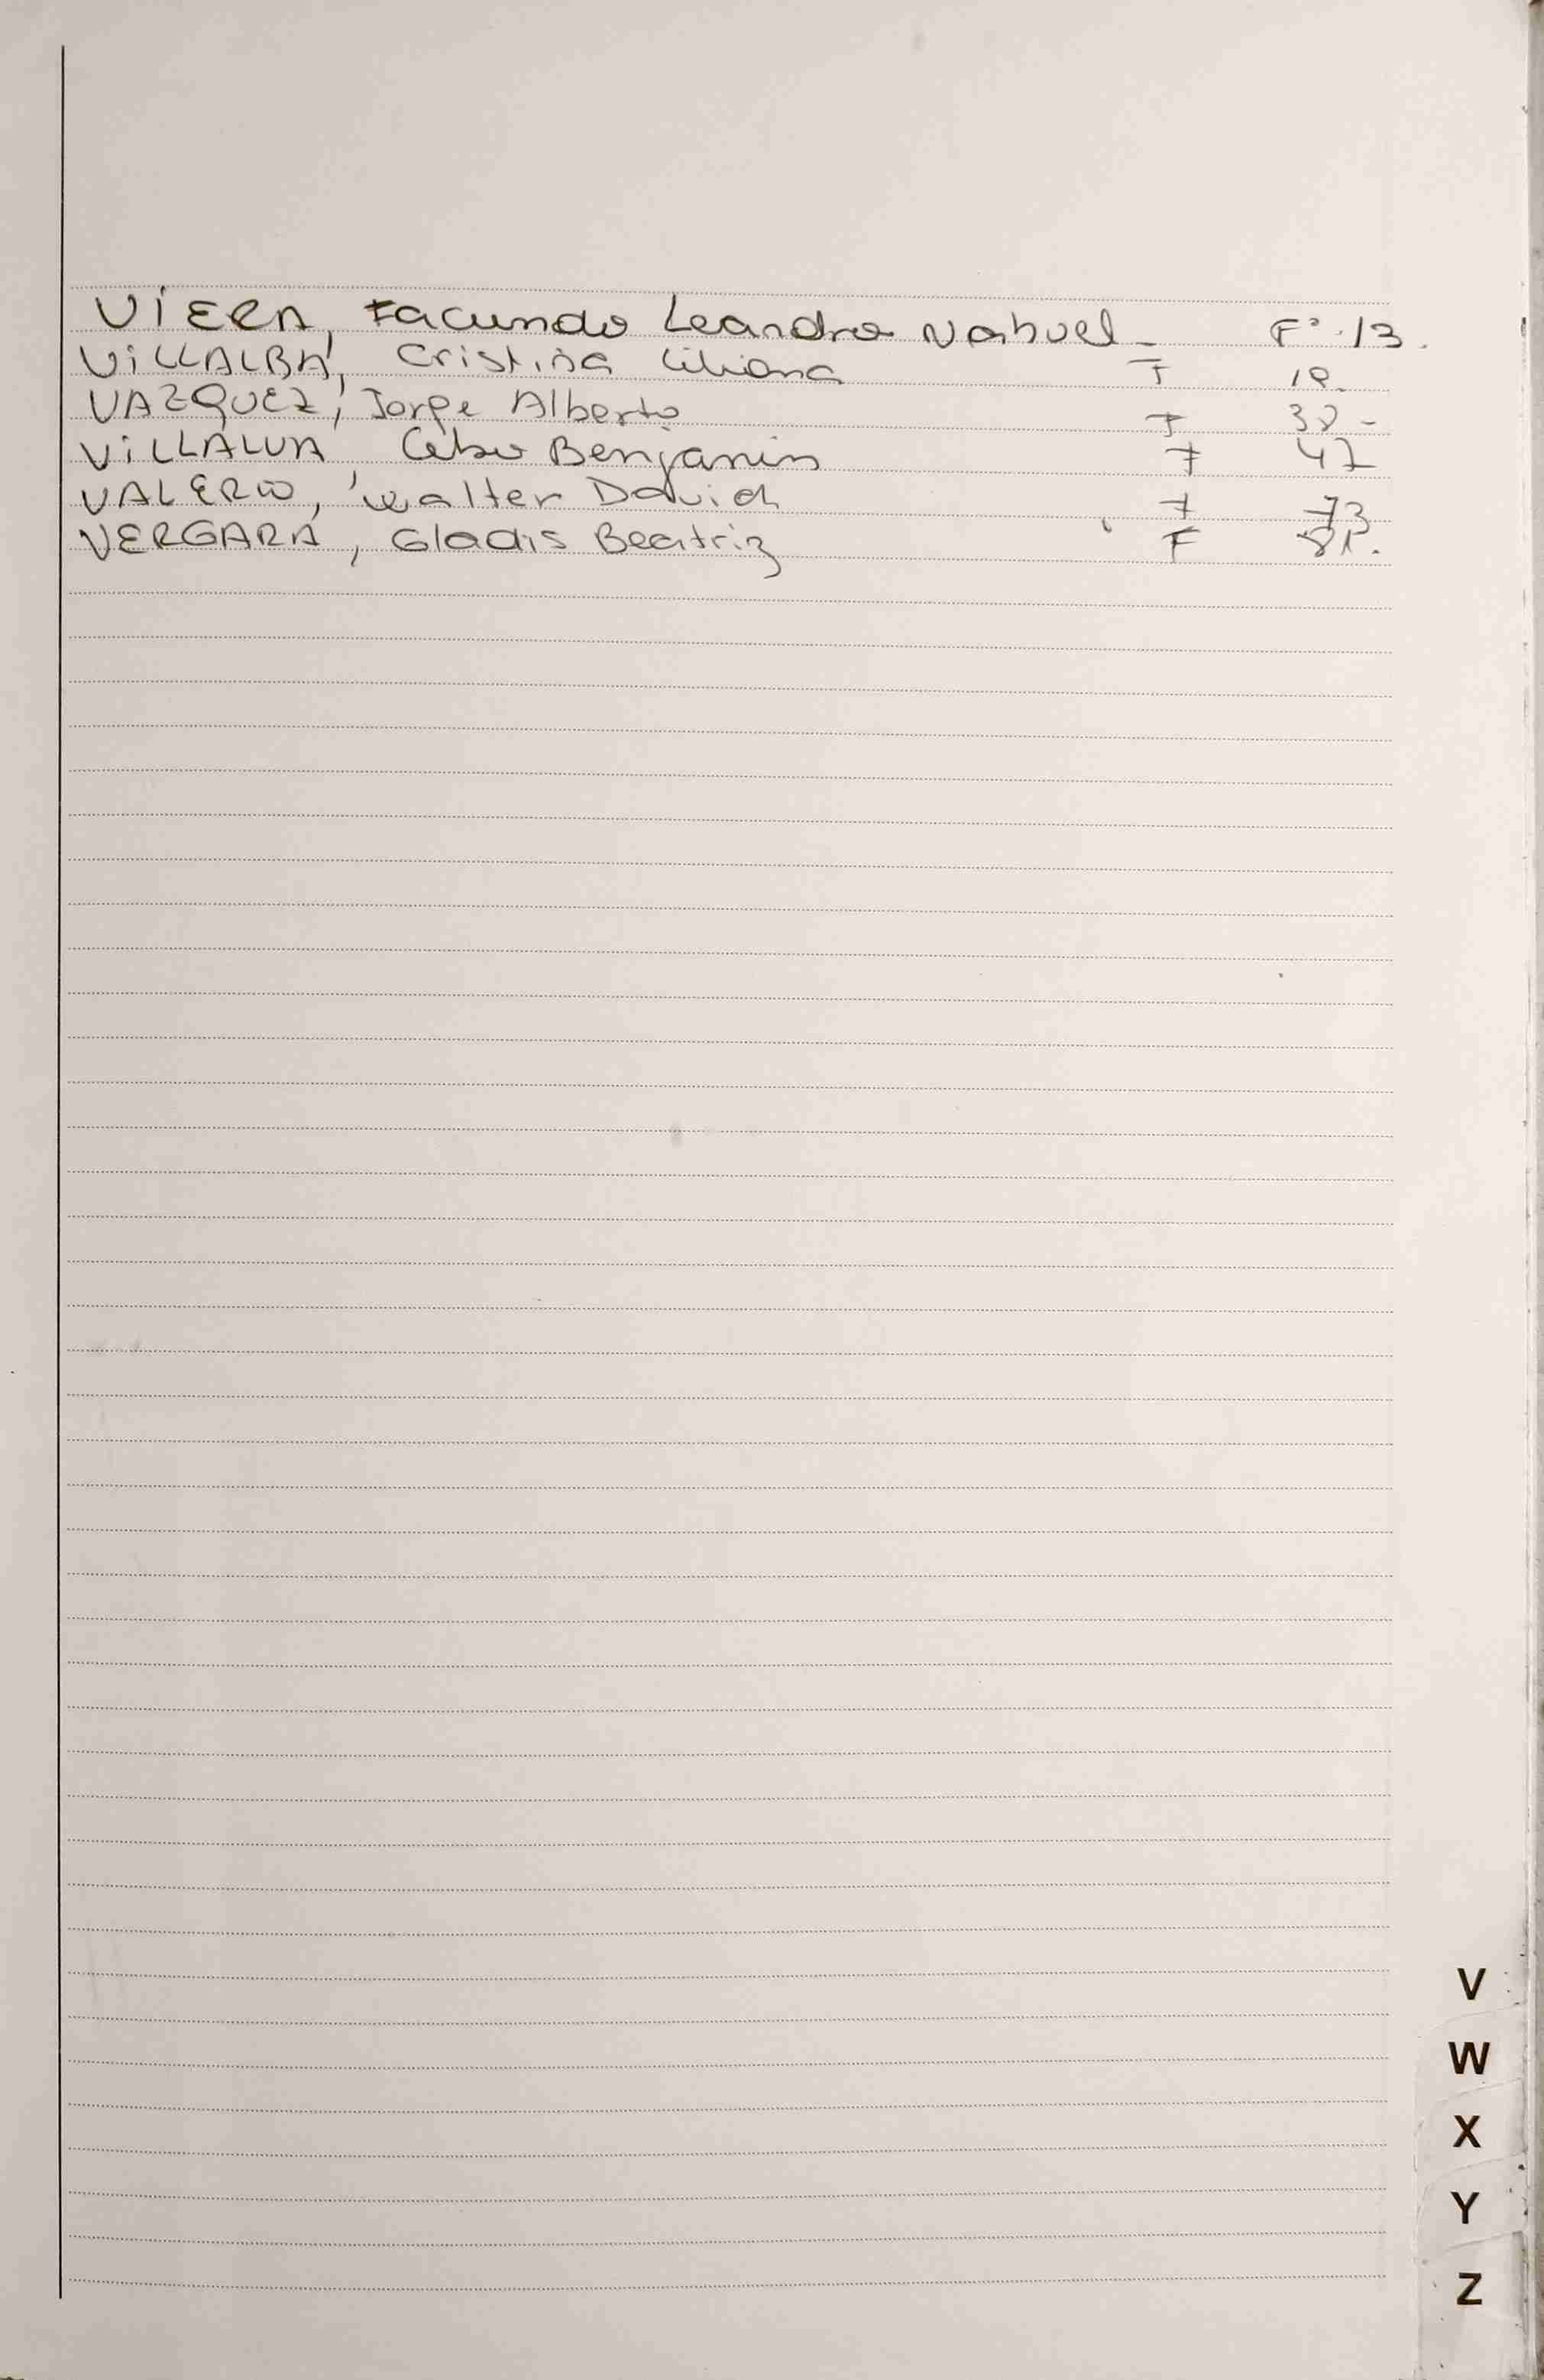 VIERA, Facundo Leandro Nahuel - F° 13.
VILLALBA, Cristina Liliana F 19.
VAZQUEZ, Jorge Alberto F 38 -
VILLALVA, Benjamin F 47
VALERIO, Walter David F 73
VERGARA, Gladis Beatriz F 81.
V
W
X
Y
Z